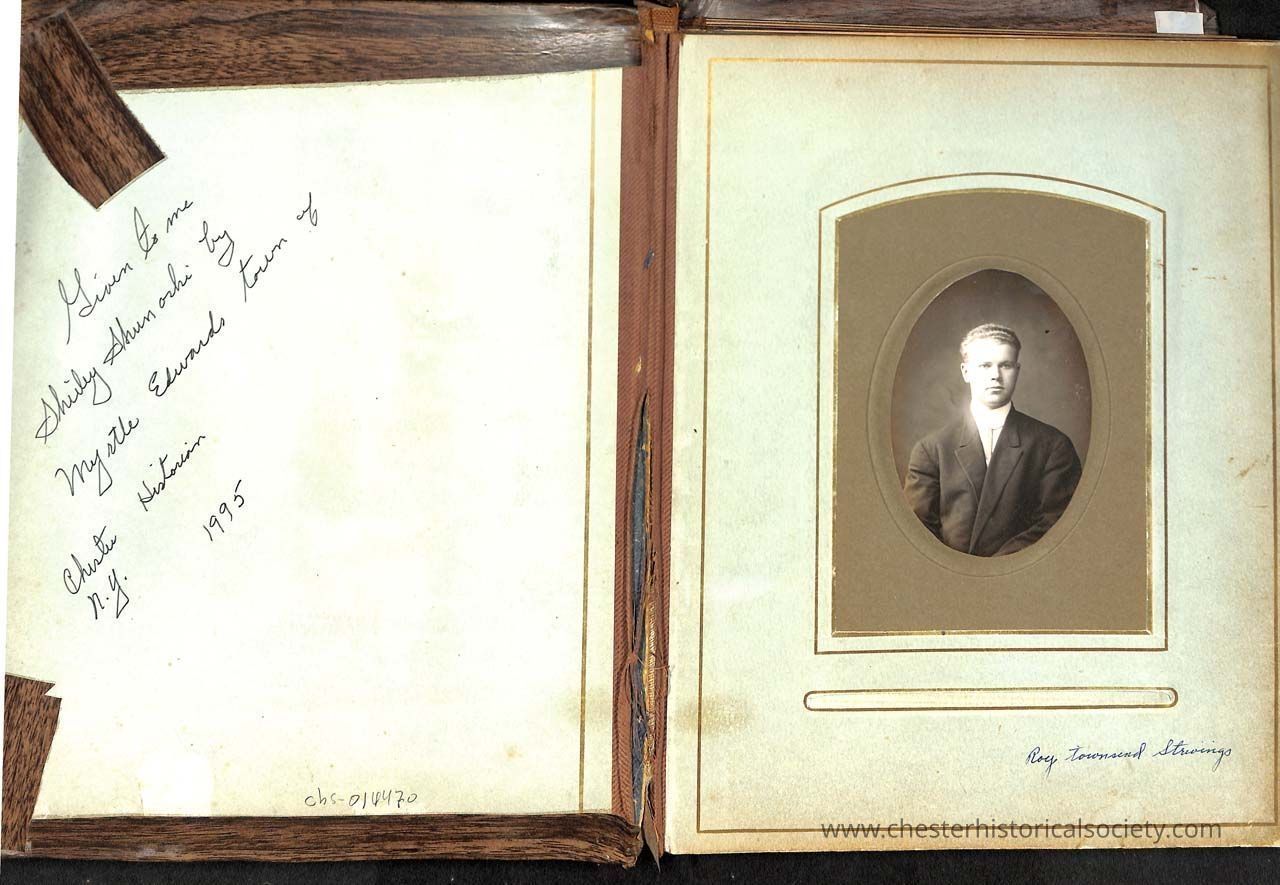 Given to me
Shirley Shunoski by
Myrtle Edwards town of
Chester Historian
N.Y. 1995
chs-014470
Roy townsend Strivings
www.chesterhistoricalsociety.com